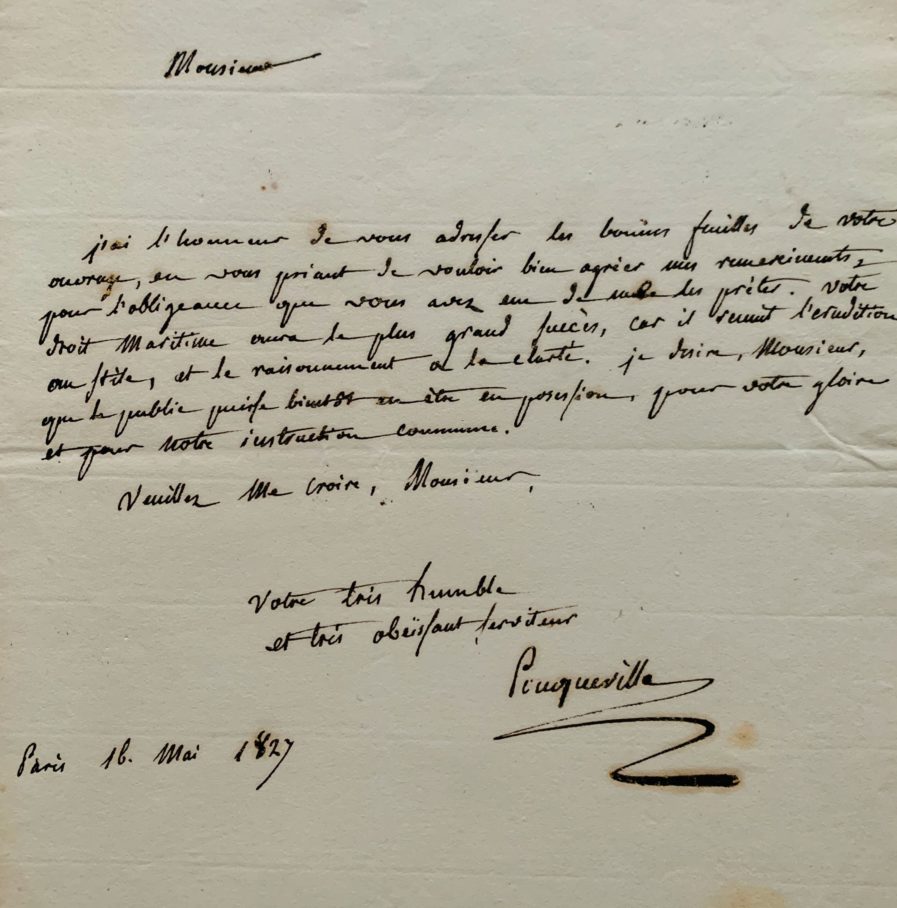 Monsieur
j'ai l'honneur de vous adresser les bonnes feuilles de votre
ouvrage, en vous priant de vouloir bien agréer mes remerciments,
pour l'obligeance que vous avez eue de me les prêter. Votre
droit Maritime aura le plus grand succès, car il réunit l'erudition
au stile, et le raisonnement a la clarté. je desire, Monsieur,
que le public puisse bientôt en être en posession, pour votre gloire
et pour notre instruction commune.
Veuillez Me croire, Monsieur,
Votre très humble
et très obeïssant serviteur
Pouqueville
Paris 16. Mai 1827